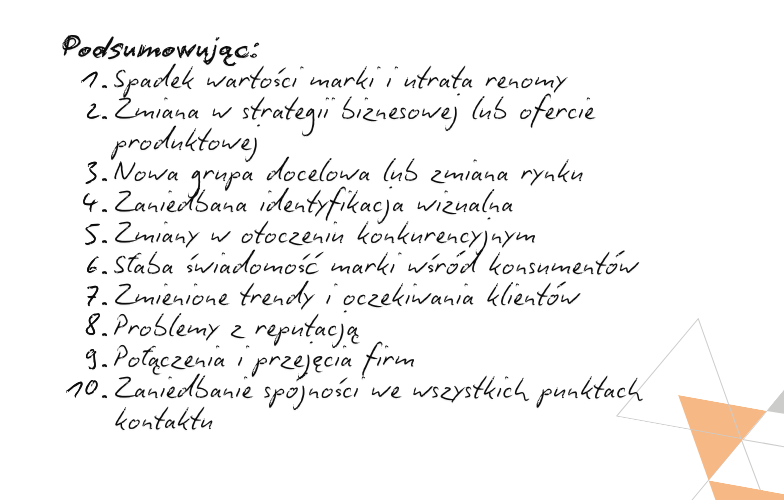 Podsumowując:
1. Spadek wartości marki i utrata renomy
2. Zmiana w strategii biznesowej lub ofercie
produktowej
3. Nowa grupa docelowa lub zmiana rynku
4. Zaniedbana identyfikacja wizualna
5. Zmiany w otoczeniu konkurencyjnym
6. Słaba świadomość marki wśród konsumentów
7. Zmienione trendy i oczekiwania klientów
8. Problemy z reputacją
9. Połączenia i przejęcia firm
10. Zaniedbanie spójności we wszystkich punktach
kontaktu